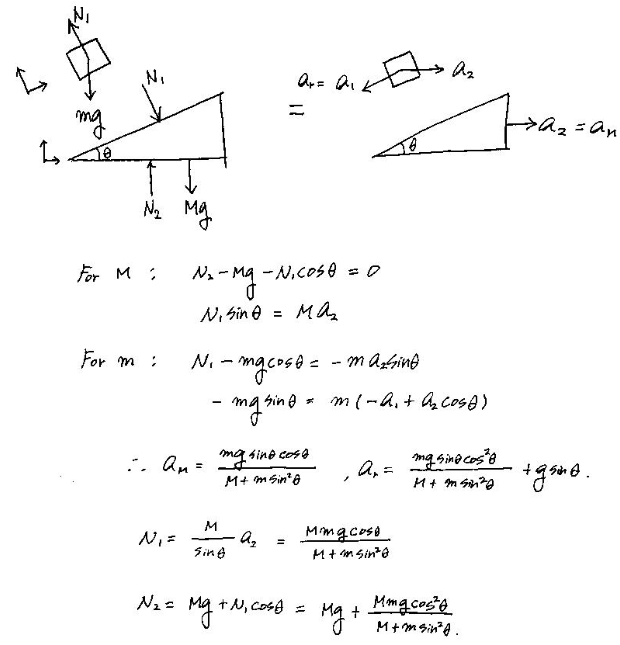 N₁
mg
N₁
θ
N₂ Mg
=
aᵣ = a₁
a₂
θ
a₂ = aₘ
For M : N₂ - Mg - N₁cosθ = 0
N₁ sinθ = Ma₂
For m : N₁ - mgcosθ = - ma₂sinθ
- mg sinθ = m(-a₁ + a₂cosθ)
∴ aₘ = mg sinθ cosθ / M + m sin²θ , aᵣ = mg sinθ cos²θ / M + m sin²θ + g sinθ.
N₁ = M / sinθ a₂ = Mmg cosθ / M + m sin²θ
N₂ = Mg + N₁cosθ = Mg + Mmg cos²θ / M + m sin²θ.